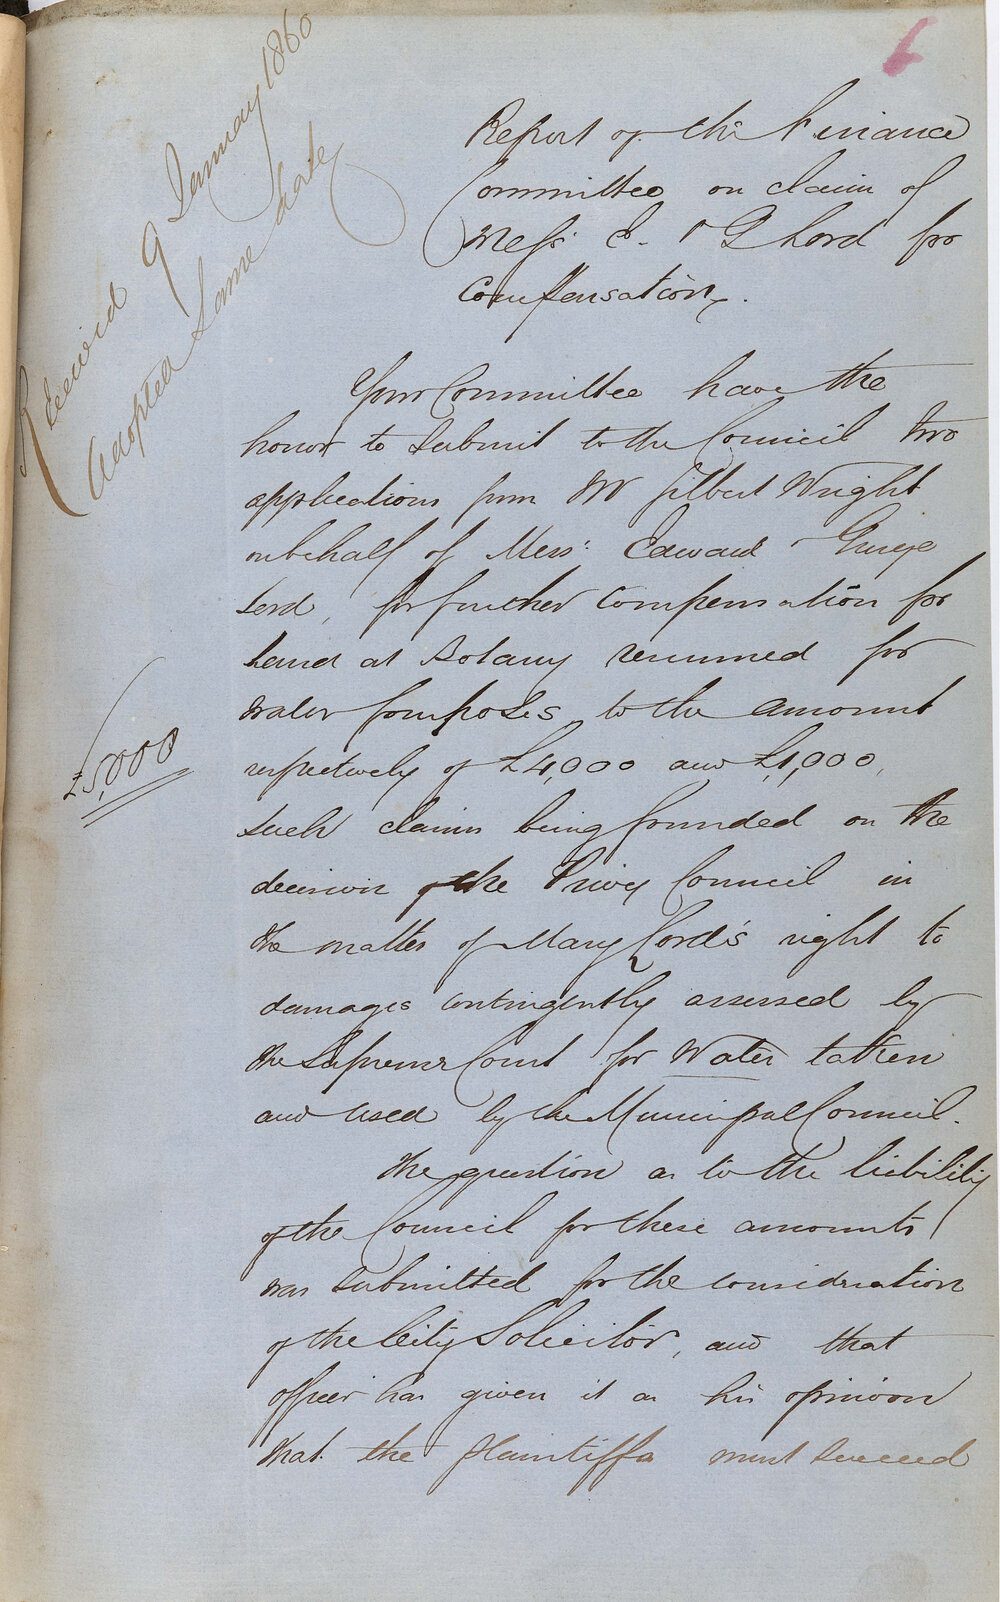 6
Received 9 January 1860
Adopted Same date
Report of the Finance
Committee on claim of
Mess.rs E. & G Lord for
Compensation.
Your Committee have the
honor to submit to the Council two
applications from Mr Gilbert Wright
on behalf of Mess.rs Edward & George
Lord, for further compensation for
Land at Botany resumed for
water purposes to the amount
respectively of £4,000 and £1,000,
£5,000
such claims being founded on the
decision of the Privy Council in
the matter of Mary Lord's right to
damages contingently assessed by
the Supreme Court for Water taken
and used by the Municipal Council.
The question as to the liability
of the Council for these amounts
was submitted for the consideration
of the City Solicitor, and that
officer has given it as his opinion
that the Plaintiffs must succeed